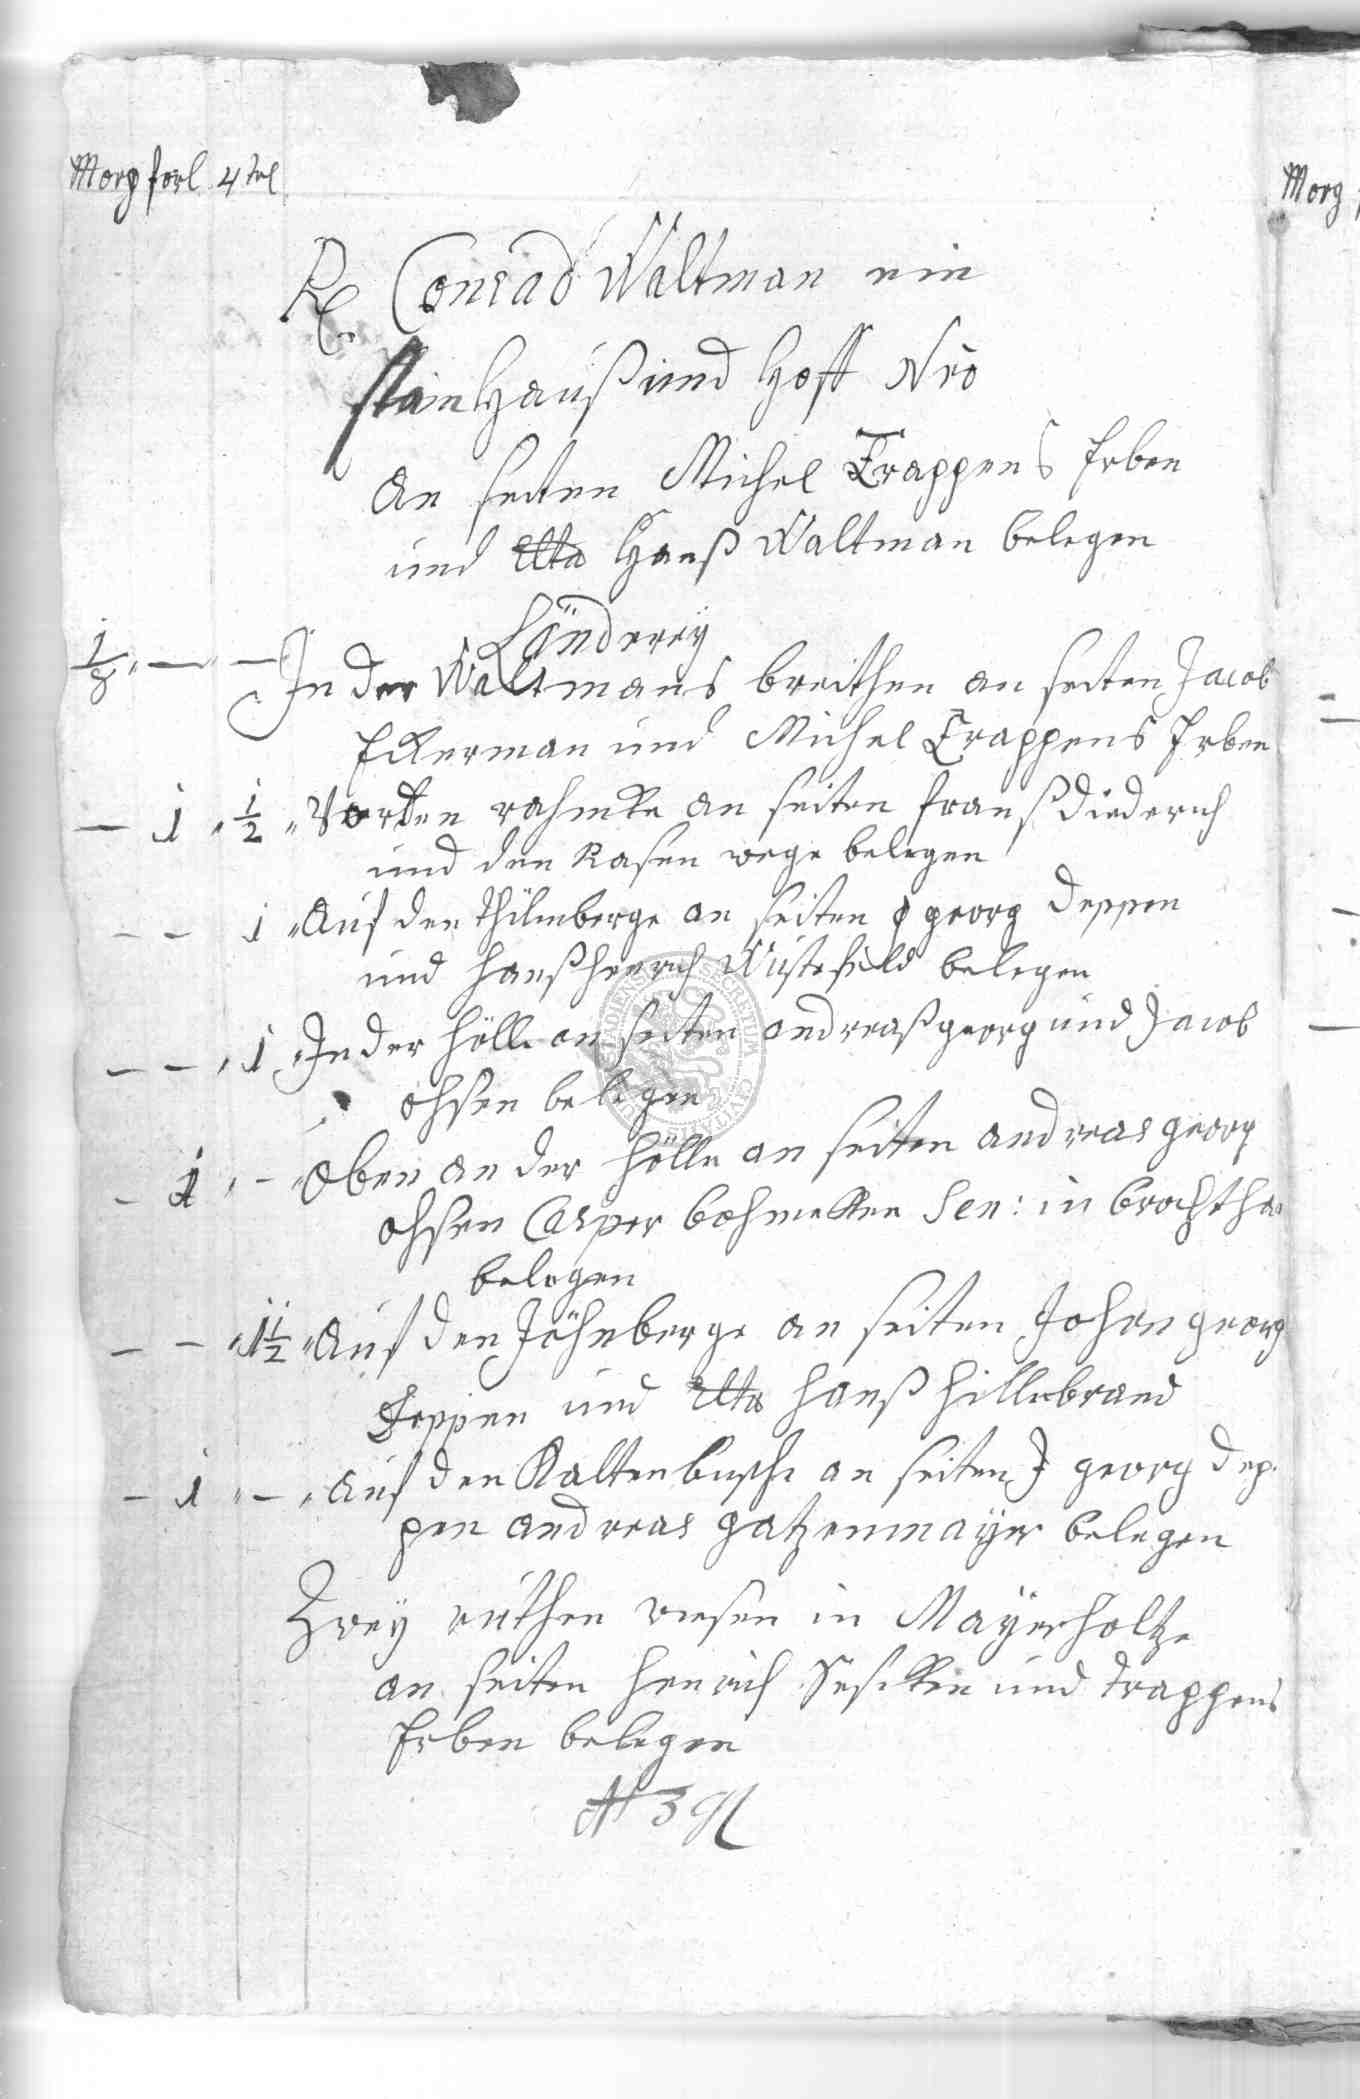 Morg forl 4tel
Conrad Waltman ein
Hauß und Hoff Nro
an seiten Michel Trappens Erben
und Hanß Waltman belegen
Länderey
1/8 — — In der Waltmans breithen an seiten Jacob
Eckerman und Michel Trappens Erben
— 1 1/2 Vor den an seiten Franß Diederich
und den Rasen wege belegen
— — 1 Auf den Thilmberge an seiten georg Deppen
und Hanß Henrich Wüstefeld belegen
— — 1 In der Hölle an seiten andreaß georg und Jacob
ohsen belegen
— 1 — Oben an der Hölle an seiten andreas georg
ohsen Casper Sen: in
belegen
— — 1 1/2 Auf den an seiten Johan georg
Deppen und Hanß Hillebrand
— 1 — Auf den Kaltenbusche an seiten J georg Dep-
pen andreas gatzenmayer belegen
Zwey ruthen wiesen in Mayerholtze
an seiten Henrich und Trappens
Erben belegen
Morg